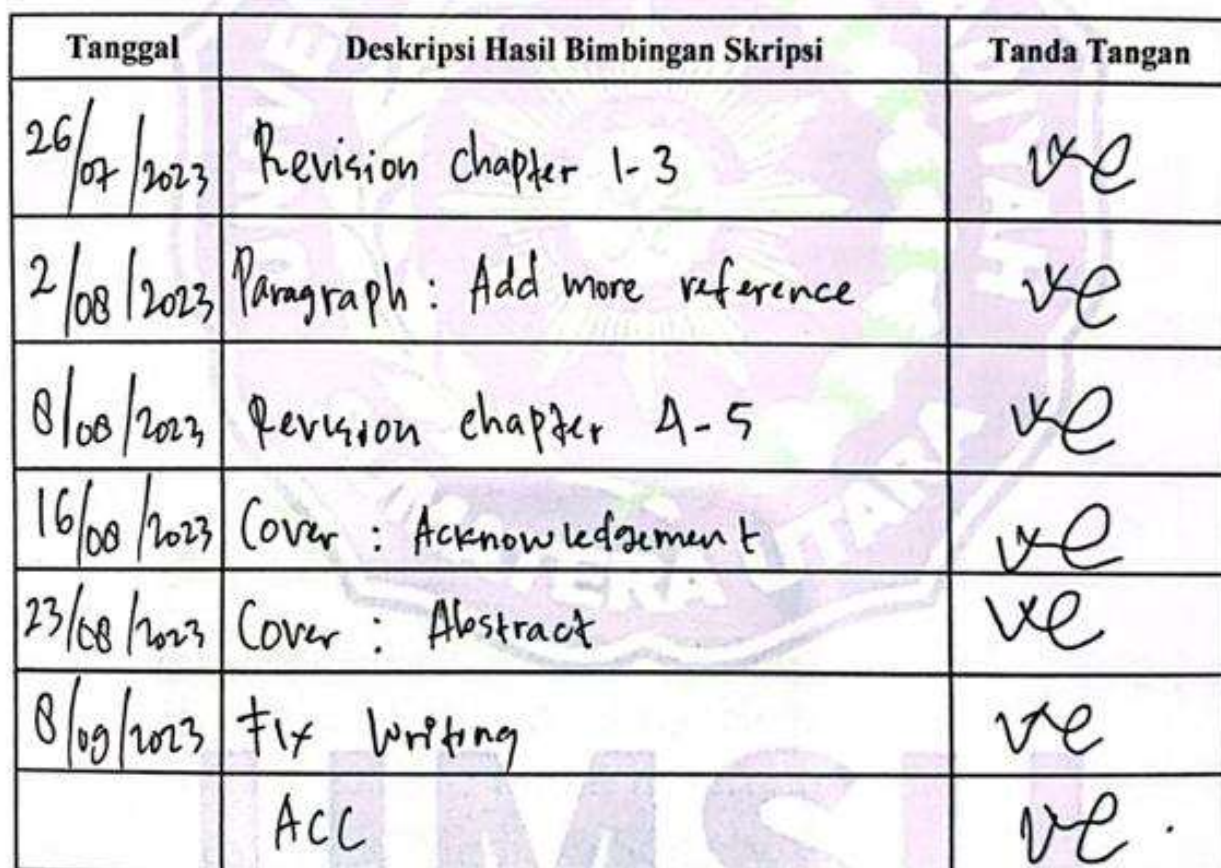 Tanggal Deskripsi Hasil Bimbingan Skripsi Tanda Tangan
26/07/2023 Revision chapter 1-3
2/08/2023 Paragraph : Add more reference
8/08/2023 Revision chapter 4-5
16/08/2023 Cover : Acknowledgement
23/08/2023 Cover : Abstract
8/09/2023 Fix Writing
ACC
UMSU